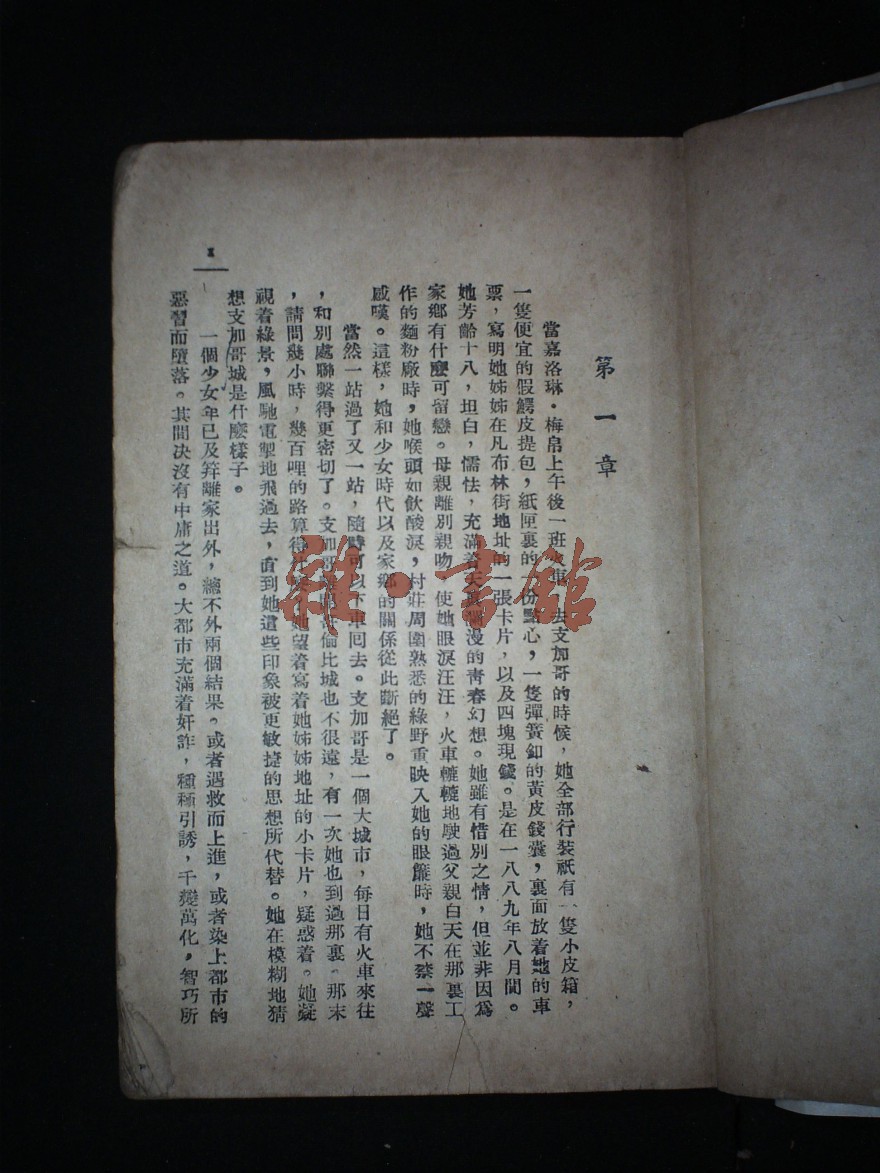 第一章
當嘉洛琳·梅帛上午後一班火車,去支加哥的時候,她全部行裝祇有一隻小皮箱,
一隻便宜的假鱷皮提包,紙匣裏的一份點心,一隻彈簧釦的黃皮錢囊,裏面放着她的車
票,寫明她姊姊在凡布林街地址的一張卡片,以及四塊現錢。是在一八八九年八月間。
她芳齡十八,坦白,懦怯,充滿着天真爛漫的青春幻想。她雖有惜別之情,但並非因爲
家鄉有什麼可留戀。母親離別親吻,使她眼淚汪汪,火車轆轆地駛過父親白天在那裏工
作的麵粉廠時,她喉頭如飲酸淚,村莊周圍熟悉的綠野重映入她的眼簾時,她不禁一聲
感嘆。這樣,她和少女時代以及家鄉的關係從此斷絕了。
當然一站過了又一站,隨時可以下車回去。支加哥是一個大城市,每日有火車來往
,和別處聯繫得更密切了。支加哥 倫比城也不很遠,有一次她也到過那裏。那末
,請問幾小時,幾百哩的路算得 她望着寫着她姊姊地址的小卡片,疑惑着。她凝
視着綠景,風馳電掣地飛過去,直到她這些印象被更敏捷的思想所代替。她在模糊地猜
想支加哥城是什麼樣子。
一個少女年已及笄離家出外,總不外兩個結果。或者遇救而上進,或者染上都市的
惡習而墮落。其間決沒有中庸之道。大都市充滿着奸詐,種種引誘,千變萬化,智巧所
1
雜·書館